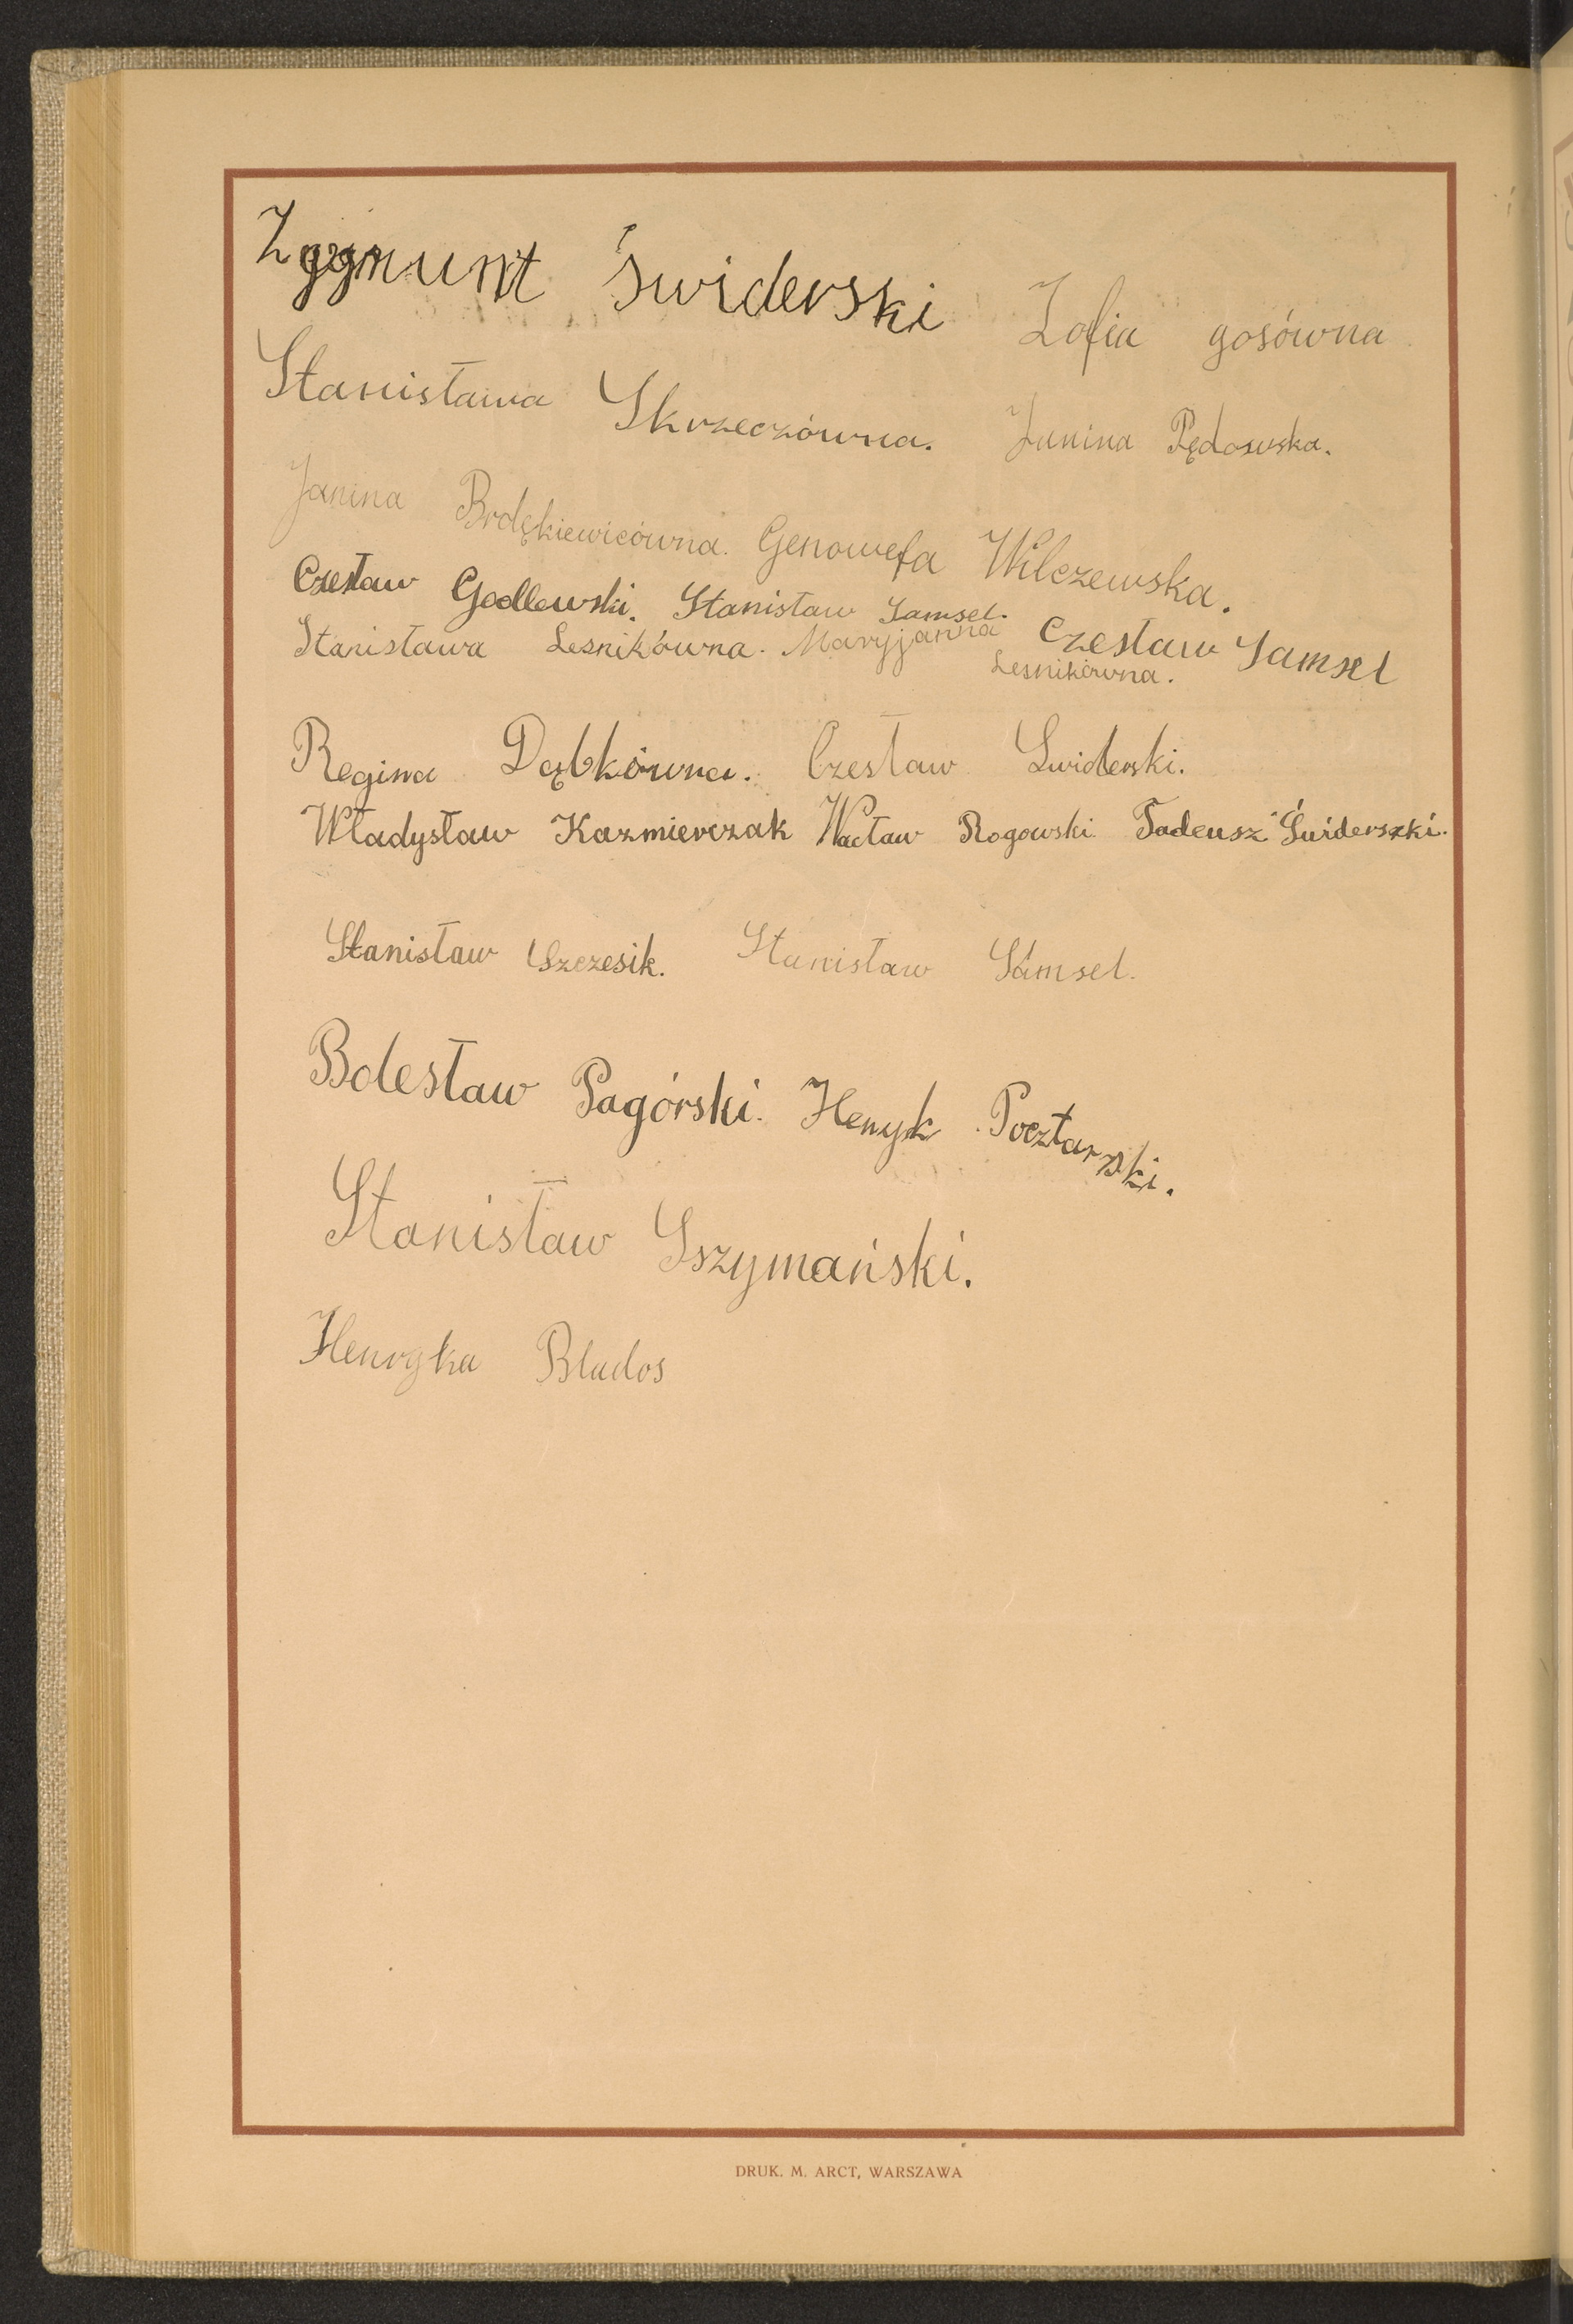 Zygmunt Świderski Zofia gosówna
Stanisława Skrzeczówna. Janina Pędowska.
Janina Brdękiewicówna. Genowefa Wilczewska.
Czesław Godlewski. Stanisław Samsel.
Stanisława Lesnikówna. Maryjanna Lesnikówna. Czesław Samsel
Regina Dąbkówna. Czesław Swiderski.
Władysław Kazmierczak Wacław Rogowski Tadeusz Świderszki.
Stanisław Szczesik. Stanisław Samsel.
Bolesław Pagórski. Henyk Pocztarski.
Stanisław Sszymański.
Henryka Blados
DRUK. M. ARCT, WARSZAWA